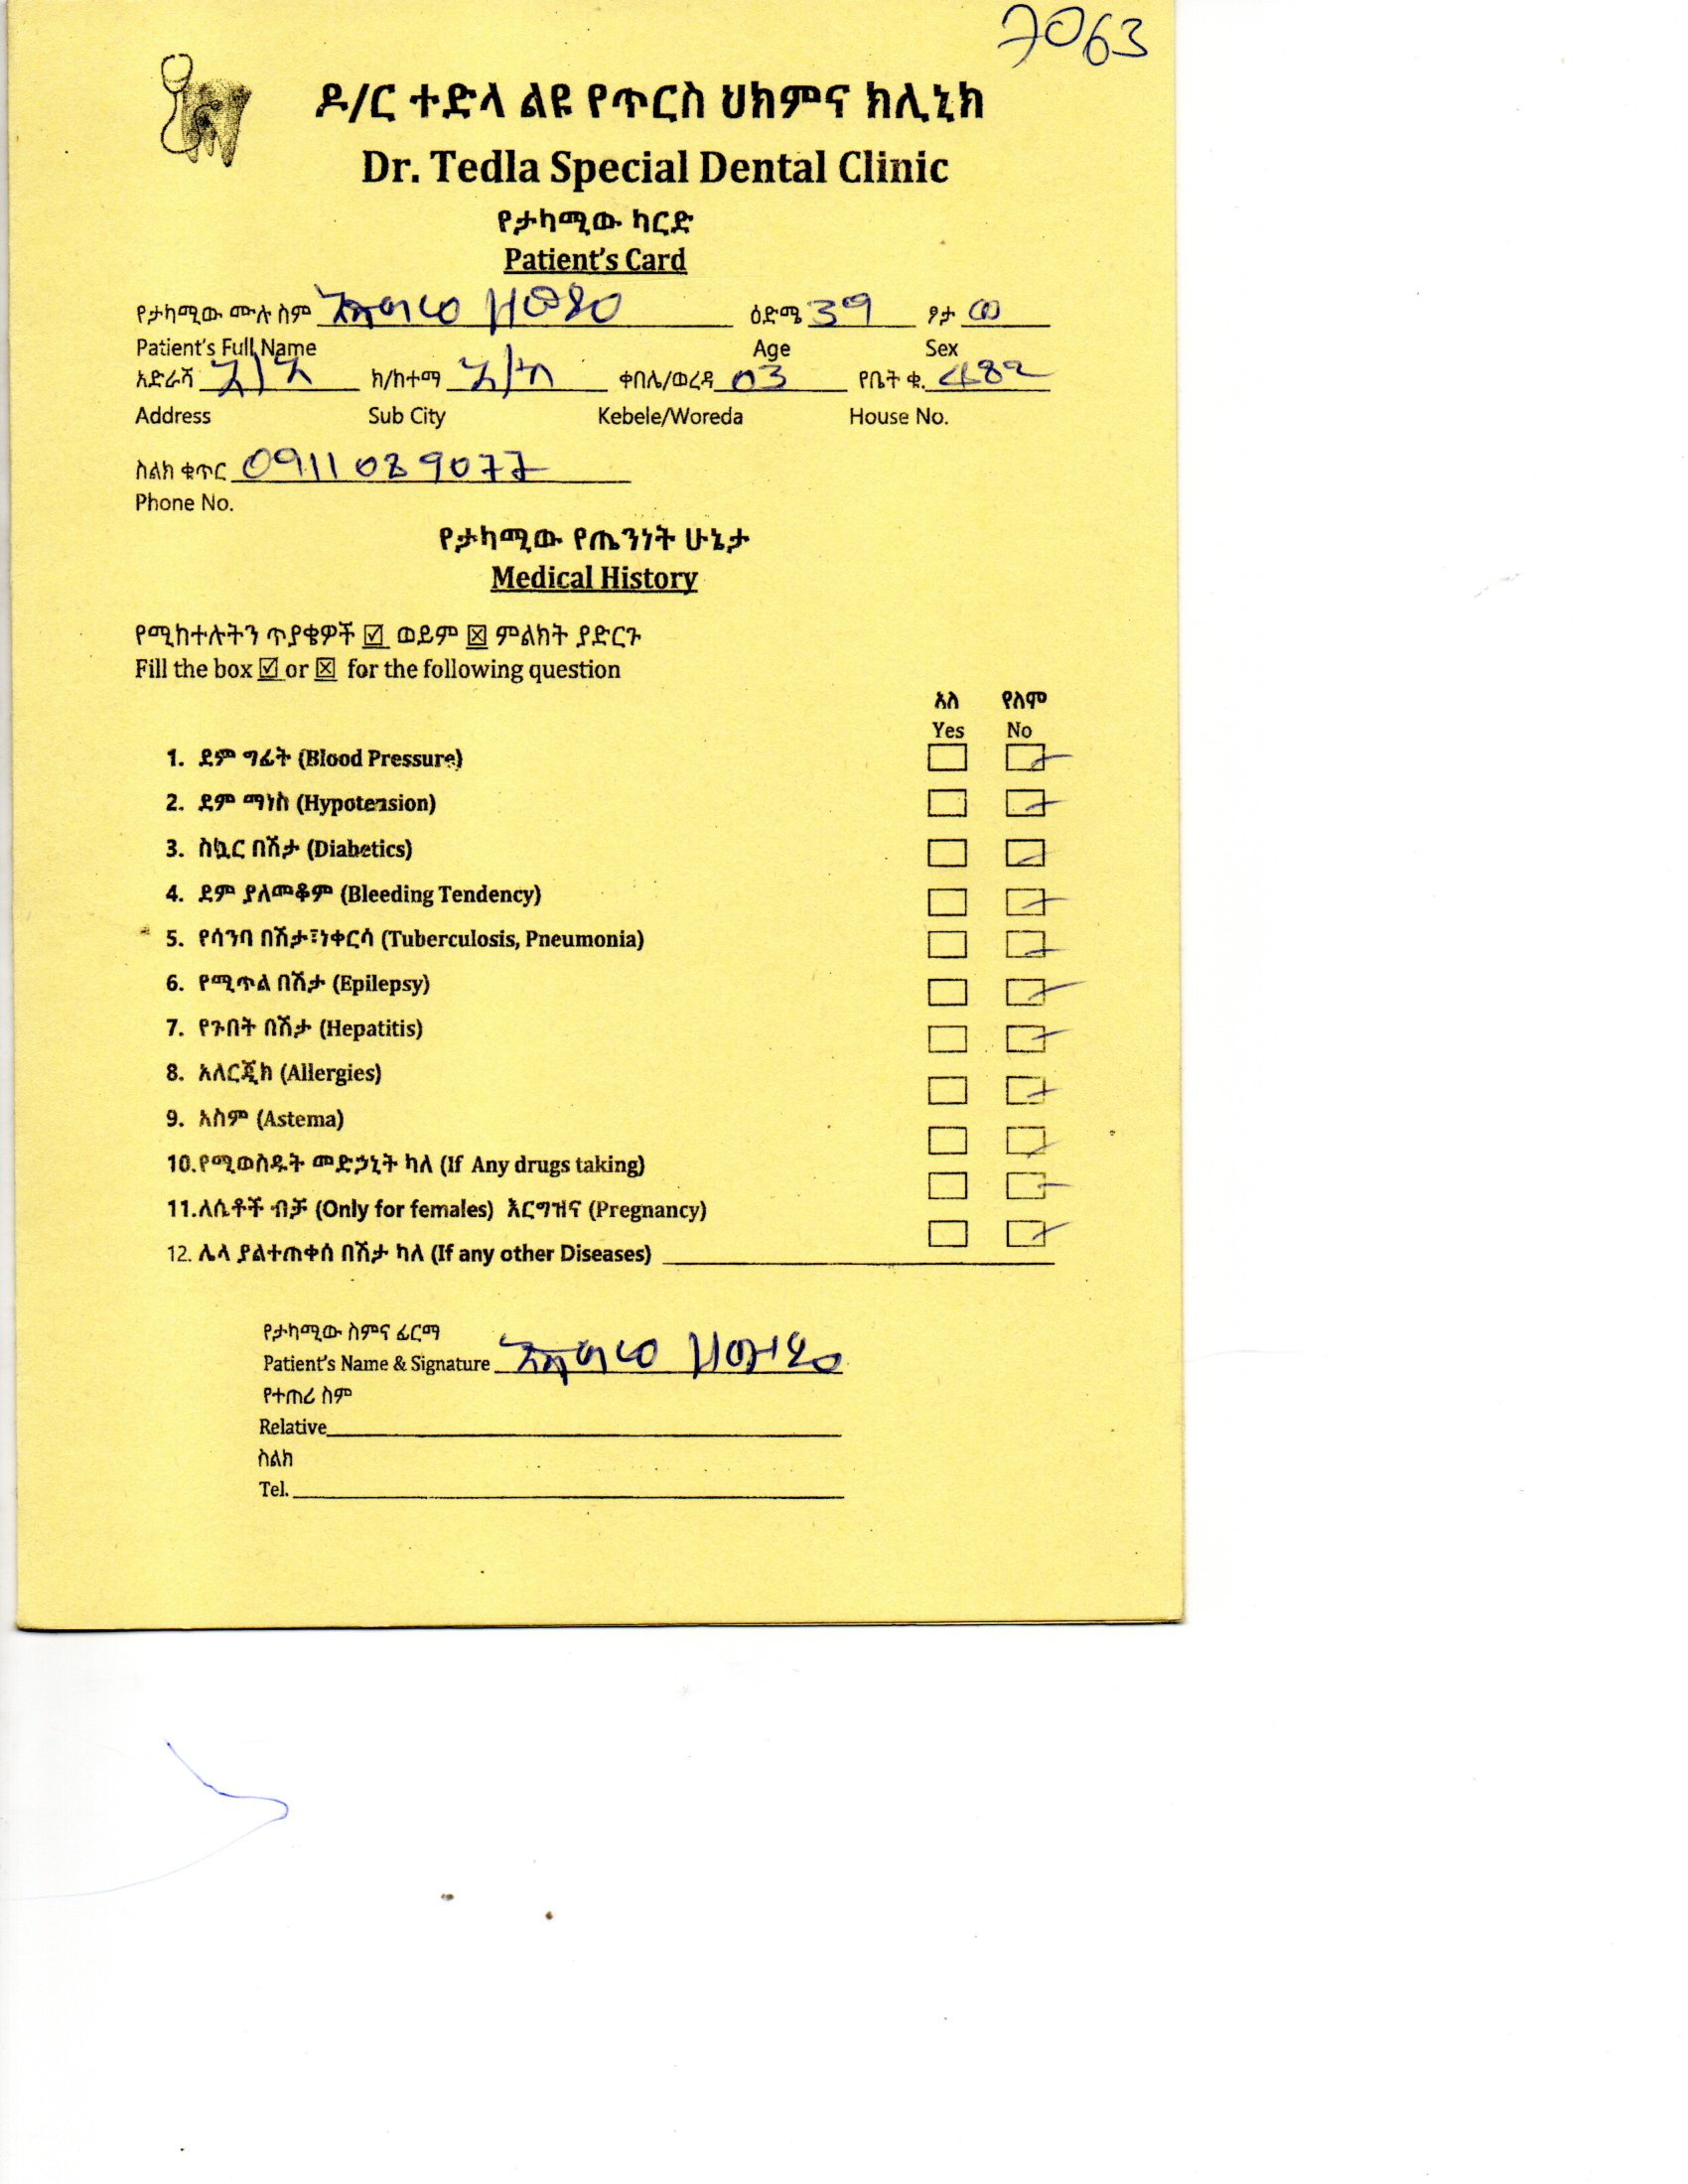 7063
ዶ/ር ተድላ ልዩ የጥርስ ህክምና ክሊኒክ
Dr. Tedla Special Dental Clinic
የታካሚው ካርድ
Patient's Card
የታካሚው ሙሉ ስም ዕድሜ 39 ፆታ ወ
Patient's Full Name Age Sex
አድራሻ አ/አ ክ/ከተማ ቀበሌ/ወረዳ 03 የቤት ቁ. 482
Address Sub City Kebele/Woreda House No.
ስልክ ቁጥር 0911089077
Phone No.
የታካሚው የጤንነት ሁኔታ
Medical History
የሚከተሉትን ጥያቄዎች ☑ ወይም ☒ ምልክት ያድርጉ
Fill the box ☑ or ☒ for the following question
አለ የለም
Yes No
1. ደም ግፊት (Blood Pressure)
2. ደም ማነስ (Hypotension)
3. ስኳር በሽታ (Diabetics)
4. ደም ያለመቆም (Bleeding Tendency)
5. የሳንባ በሽታ፣ነቀርሳ (Tuberculosis, Pneumonia)
6. የሚጥል በሽታ (Epilepsy)
7. የጉበት በሽታ (Hepatitis)
8. አለርጂክ (Allergies)
9. አስም (Astema)
10.የሚወስዱት መድኃኒት ካለ (If Any drugs taking)
11.ለሴቶች ብቻ (Only for females) እርግዝና (Pregnancy)
12. ሌላ ያልተጠቀሰ በሽታ ካለ (If any other Diseases)
የታካሚው ስምና ፊርማ
Patient's Name & Signature
የተጠሪ ስም
Relative
ስልክ
Tel.